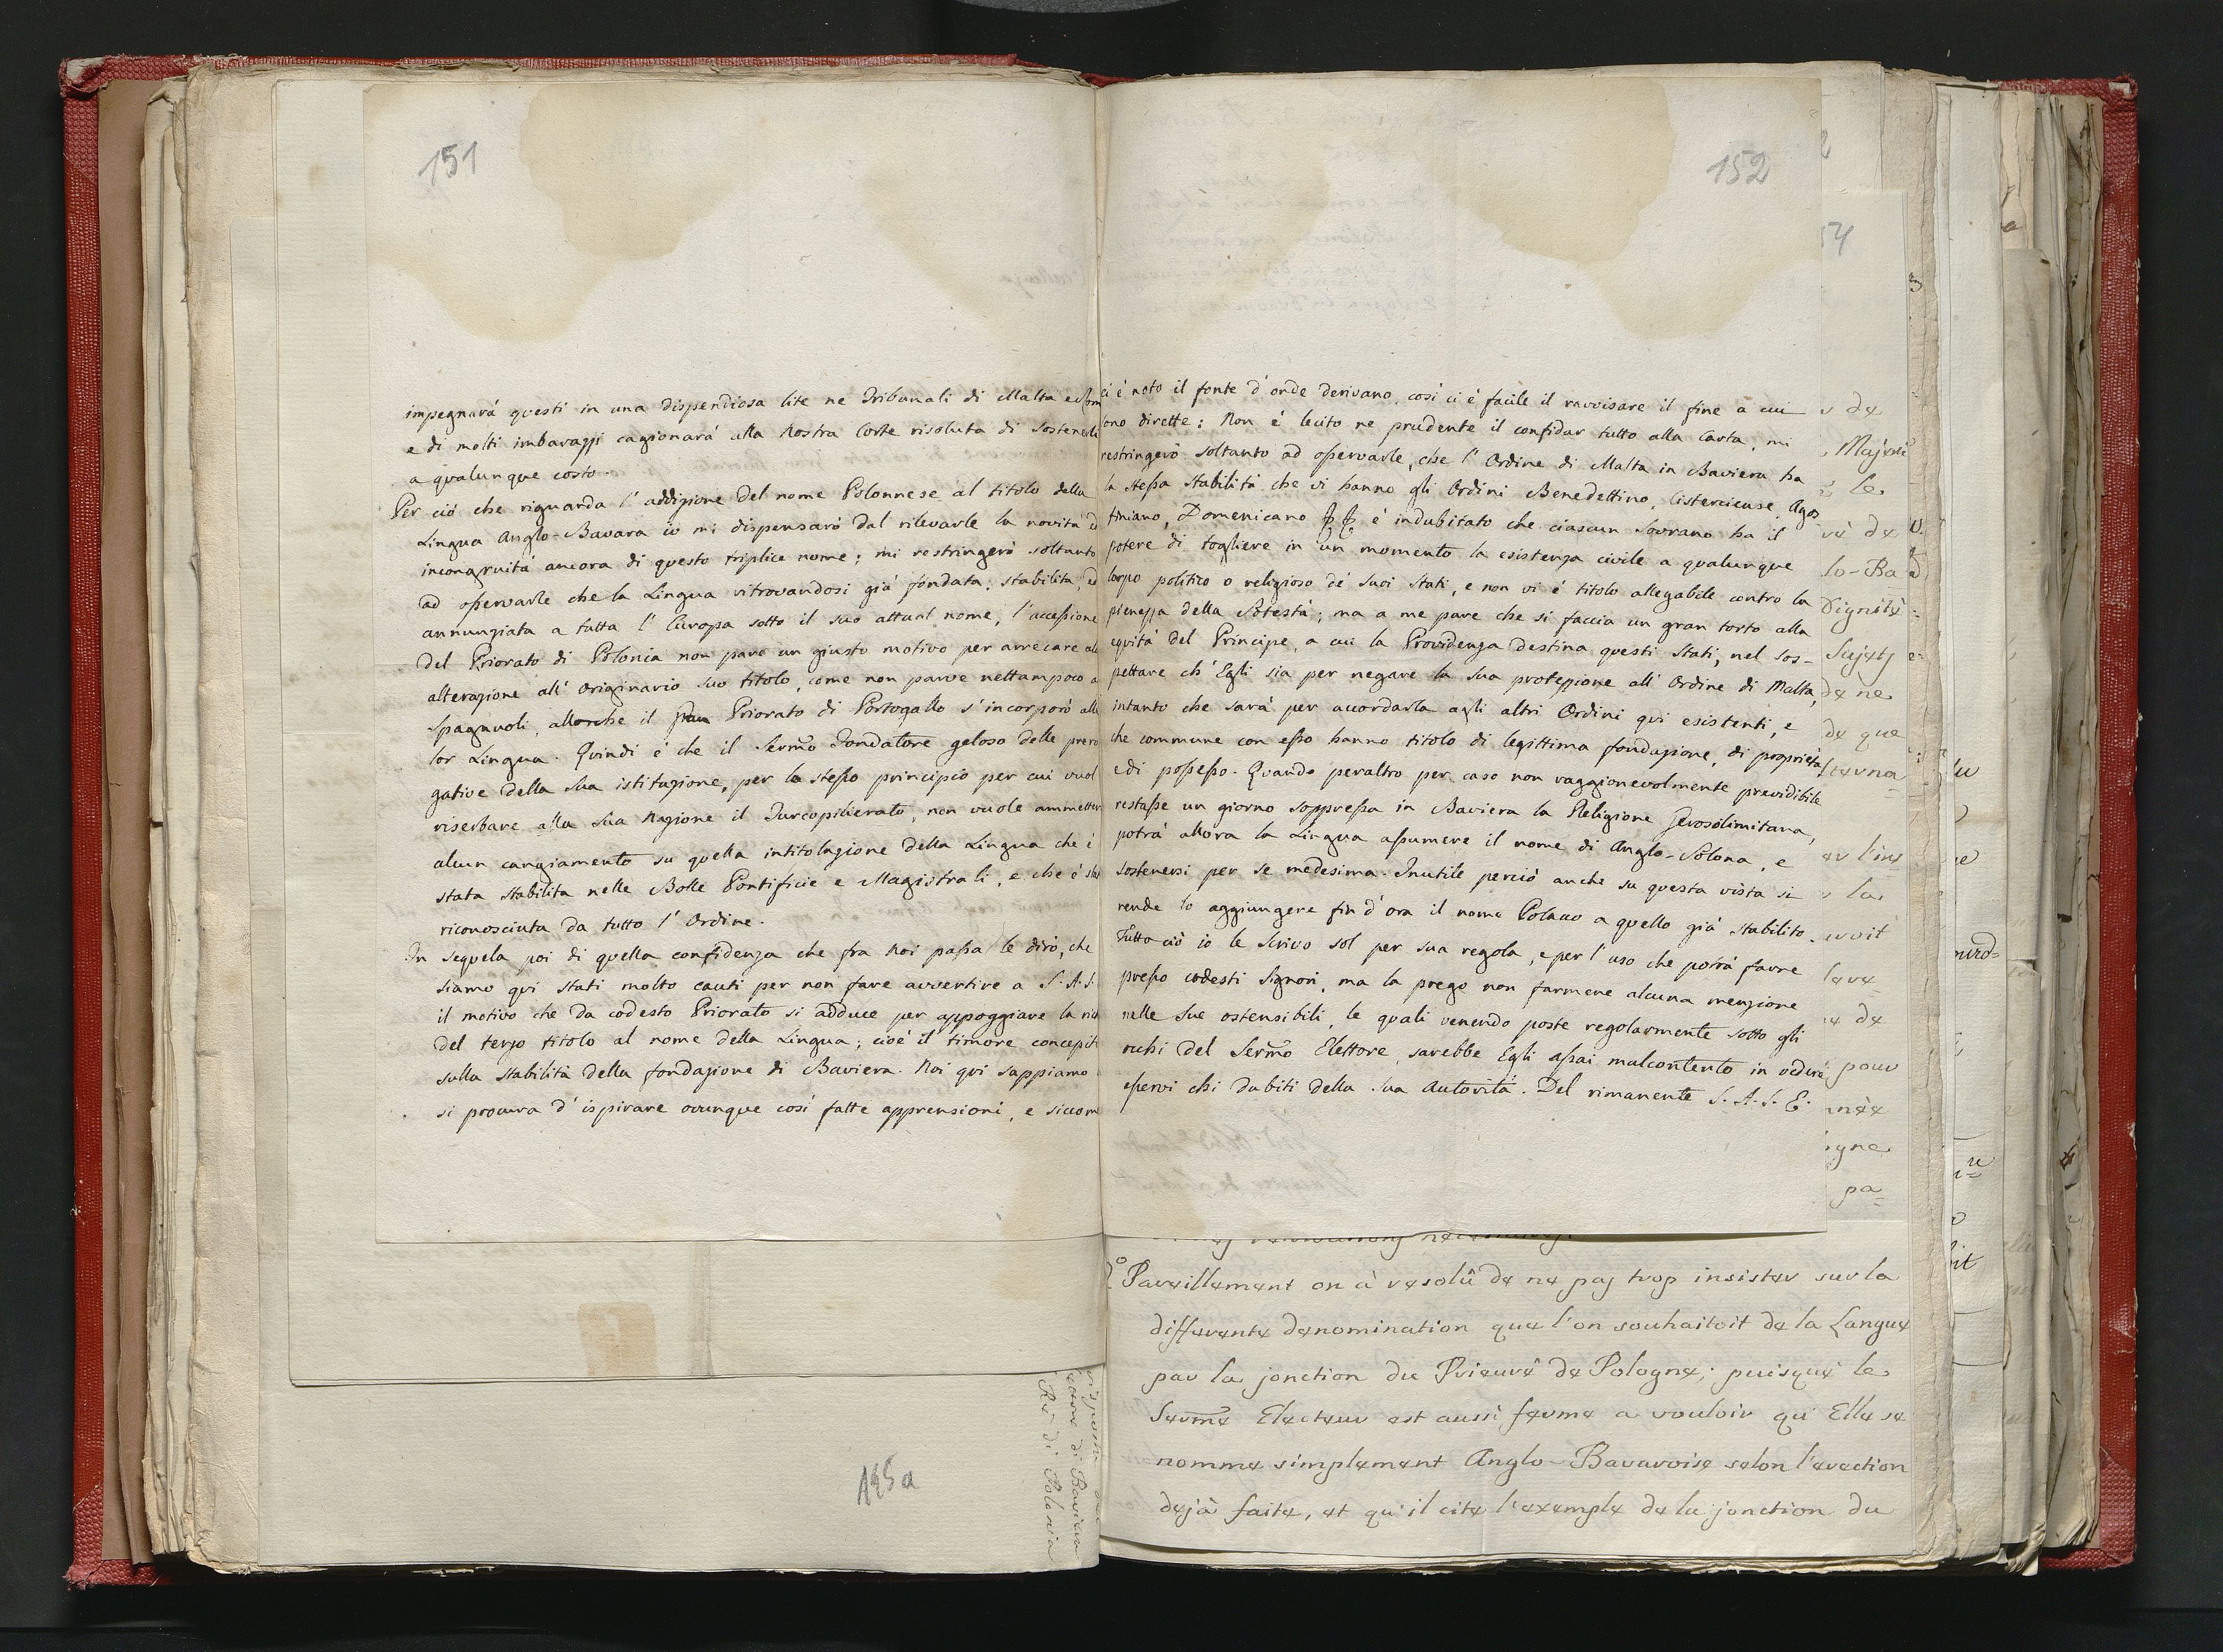 151
impegnarà questi in una dispendiosa lite ne Tribunali di Malta ed
e di molti imbarazzi cagionarà alla Nostra Corte risoluta di sostenerli
a qualunque costo.
Per ciò che riguarda l' addizione del nome Polonnese al titolo della
Lingua Anglo-Bavara io mi dispensarò dal rilevarle la novità ed
incongruità ancora di questo triplice nome; mi restringerò soltanto
ad osservarle che la Lingua ritrovandosi già fondata, stabilita, ed
annunziata a tutta l' Europa sotto il suo attual nome, l' accessione
del Priorato di Polonia non pare un giusto motivo per arrecare
alterazione all' originario suo titolo, come non parve nettampoco a
Spagnuoli, allorche il Priorato di Portogallo s' incorporò alla
lor Lingua. Quindi è che il Sermo Fondatore geloso delle prero
gative della sua istituzione, per lo stesso principio per cui vuol
riserbare alla sua Nazione il Turcopilierato, non vuole ammetter
alcun cangiamento su quella intitolazione della Lingua che è
stata stabilita nelle Bolle Pontificie e Magistrali, e che è stata
riconosciuta da tutto l' Ordine.
In sequela poi di quella confidenza che fra Noi passa le dirò, che
siamo qui stati molto cauti per non fare avvertire a S. A. S.
il motivo che da codesto Priorato si adduce per appoggiare la
del terzo titolo al nome della Lingua; cioè il timore concepit
sulla stabilità della fondazione di Baviera. Noi qui sappiamo
si procura d' ispirare ovunque così fatte apprensioni, e siccom
195a
di Baviera
Re di Polonia
152
ci è noto il fonte d' onde derivano, così ci è facile il ravvisare il fine a cui
sono dirette: Non è lecito ne prudente il confidar tutto alla Carta, mi
restringerò soltanto ad osservarle, che l' Ordine di Malta in Baviera ha
la stessa stabilità che vi hanno gli Ordini Benedettino, Cisterciense, Agos
tiniano, Domenicano è indubitato che ciascun Sovrano ha il
potere di togliere in un momento la esistenza civile a qualunque
Corpo politico o religioso de' suoi Stati, e non vi è titolo allegabile contro la
pienezza della Potestà; ma a me pare che si faccia un gran torto alla
equità del Principe, a cui la Providenza destina questi Stati, nel sos-
pettare ch' Egli sia per negare la sua protezzione all' Ordine di Malta,
intanto che sarà per accordarla agli altri Ordini qui esistenti, e
che commune con esso hanno titolo di legittima fondazione, di proprietà
e di possesso. Quando peraltro per caso non raggionevolmente previdibile
restasse un giorno soppressa in Baviera la Religione Gerosolimitana,
potrà allora la Lingua assumere il nome di Anglo-Polona, e
sostenersi per se medesima. Inutile perciò anche su questa vista si
rende lo aggiungere fin d' ora il nome Polacco a quello già stabilito.
Tutto ciò io le scrivo sol per sua regola, e per l' uso che potrà farne
presso codesti Signori, ma la prego non farmene alcuna menzione
nelle sue ostensibili, le quali venendo poste regolarmente sotto gli
occhi del Sermo Elettore, sarebbe Egli assai malcontento in vedere
esservi chi dubiti della sua Autorità. Del rimanente S. A. S. E.
Pareillement on à resolû de ne pas trop insister sur la
differente denomination que l'on souhaitoit de la Langue
par la jonction du Prieuré de Pologne; puisque le
Serme Electeur est aussi ferme a vouloir qu' Elle se
nomme simplement Anglo-Bavaroise selon l'erection
dejà faite, et qu'il cite l'exemple de la jonction du